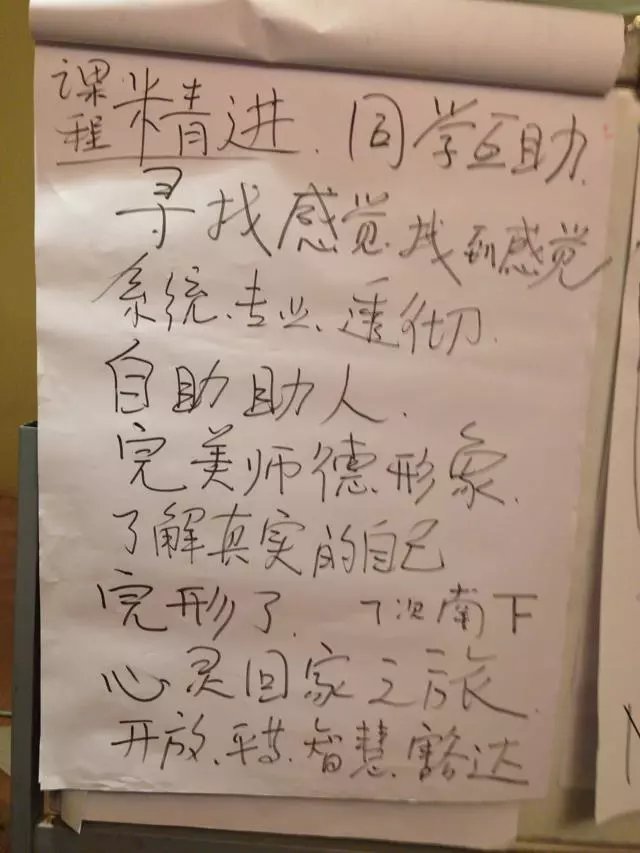 课程精进、同学互助、
寻找感觉、找到感觉
系统、专业、透彻、
自助助人、
完美师德形象、
了解真实的自己
完形了、7次南下
心灵回家之旅、
开放、智慧、豁达